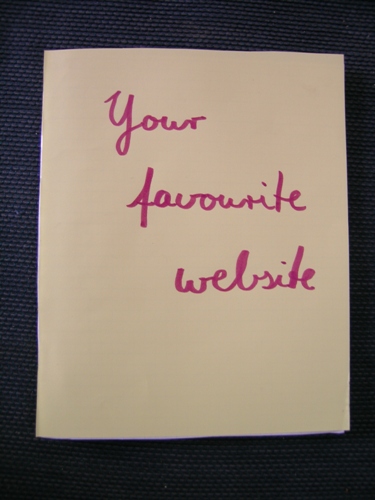 Your
favourite
website